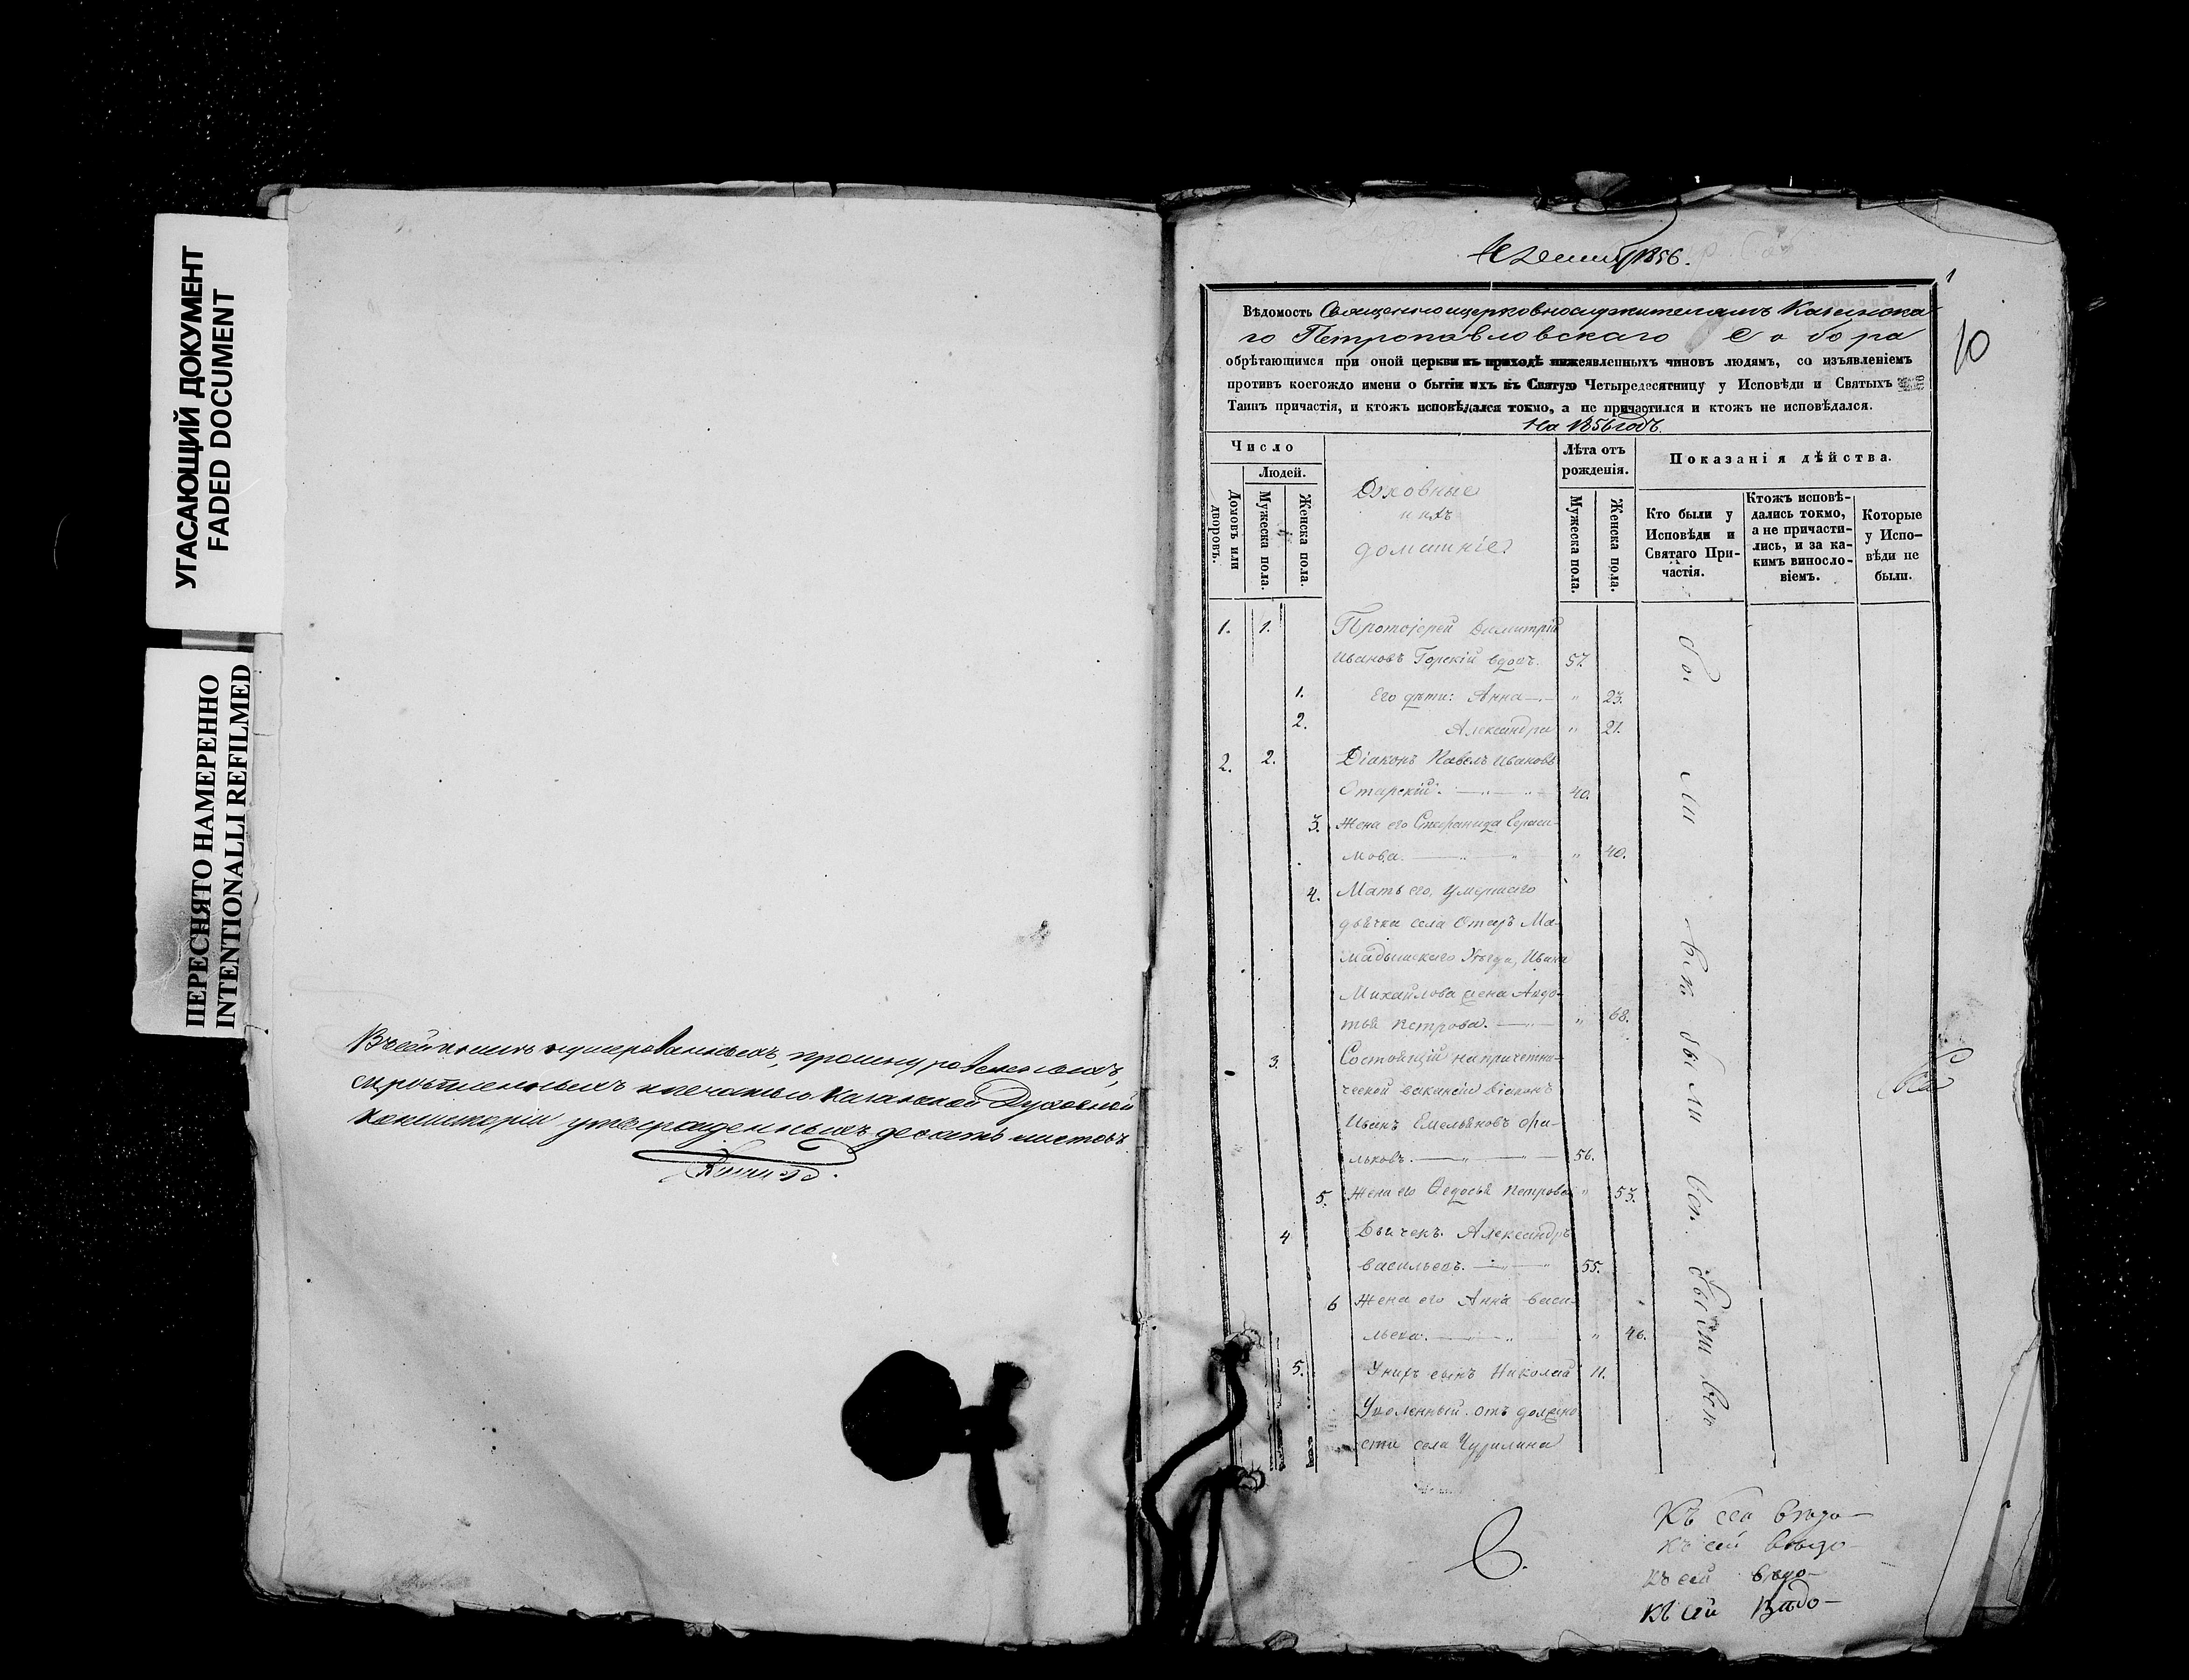 УГАСАЮЩИЙ ДОКУМЕНТ
FADED DOCUMENT
ПЕРЕСНЯТО НАМЕРЕННО
INTENTIONALLI REFILMED
Казанской Духовной
Консисторіи утвержденныхъ десять листовъ
1856.
1
10
Вѣдомость Священноицерковнослужителямъ Казанска
го Петропавловскаго Собора
обрѣтающимся при оной церкви въ приходѣ нижеявленныхъ чиновъ людямъ, со изъявленіемъ
противъ коегождо имени о бытіи ихъ въ Святую Четыредесятницу у Исповѣди и Святыхъ
Таинъ причастія, и ктожъ исповѣдался токмо, а не причастился и ктожъ не исповѣдался.
На 1856 годъ.
Число
Людей.
Домовъ или дворовъ.
Мужеска пола.
Женска пола.
Духовные
и ихъ
домашніе
Лѣта отъ рожденія.
Мужеска пола.
Женска пола.
Показанія дѣйства.
Кто были у Исповѣди и Святаго Причастія.
Ктожъ исповѣдались токмо, а не причастились, и за какимъ винословіемъ.
Которые у Исповѣди не были.
1. 1. Протоіерей Димитрій
Ивановъ Горскій вдовъ. 57.
1. Его дѣти: Анна " 23.
2. Александра " 21.
2. 2. Діаконъ Павелъ Ивановъ
Отарскій. 40.
3. Жена его Стефанида Гераси-
мова. " 40.
4. Мать его, умершаго
дьячка села Отаръ Ма-
мадышскаго Уѣзда, Ивана
Михайлова жена Авдо-
тья Петрова. " 68.
3. Состоящій на причетни-
ческой вакансіи Діаконъ
Иванъ Емельяновъ Фи-
льковъ. 56.
5. Жена его Федосья Петрова " 53.
4 Дьячекъ Александръ
Васильевъ. 55.
6 Жена его Анна Васи-
льева. " 46.
5. У нихъ сынъ Николай 11.
Уволенный отъ должно
сти села Чурилина
Къ сей вѣдо-
къ сей вѣдо-
къ сей вѣдо-
къ сей Вѣдо-